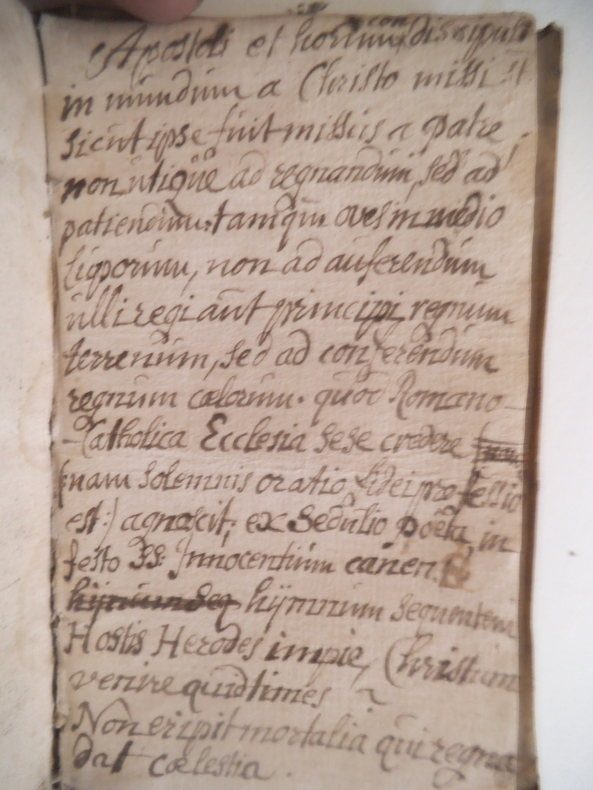 Apostoli et horum con discipuli
in mundum a Christo missi st
sicut ipse fuit missus a patre
non utiqüe ad regnandum, sed ad
patiendum. tamqm oves in medio
luporum, non ad auferendum
ulli regi aut principi regnum
terrenum, sed ad conferendum
regnum cælorum. quod Romano-
-Catholica Ecclesia sese credere
(nam solemnis oratio fidei professio
est:) agnoscit; ex Sedulio poëta, in
festo SS: Innocentium canen.
hymnum seq hijmnum sequentem
Hostis Herodes impie, Christum
venire quid times
Non eripit mortalia qui regna
dat cœlestia.